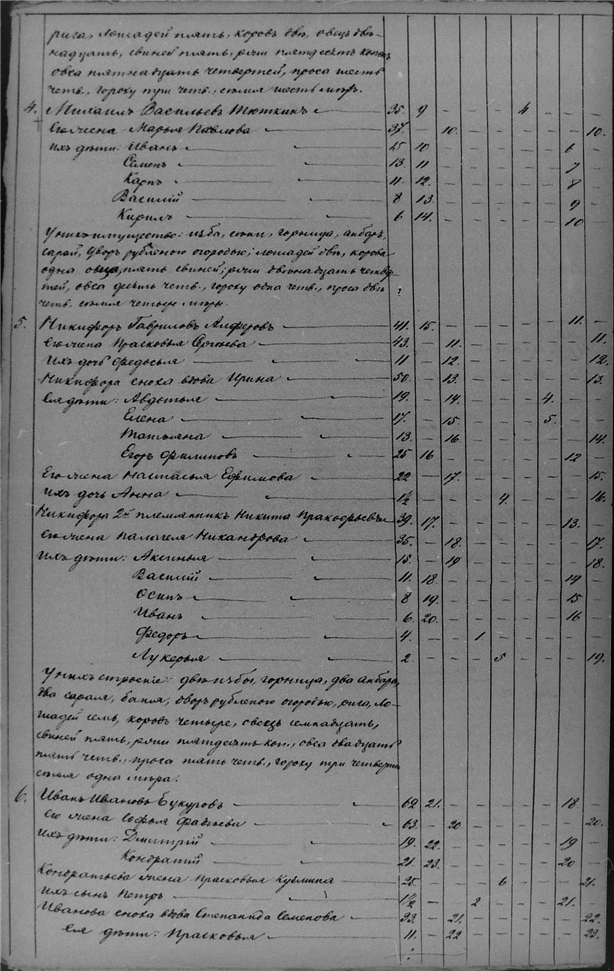 рига, лошадей пять, коровъ двѣ, овецъ двѣ-
надцать, свиней пять, ржи пятдесятъ копенъ
овса пятнадцать четвертей, проса шесть
четв., гороху три четв., семя шесть мѣръ.
4. Михаилъ Васильевъ Тюткинъ 35. 9 4
Его жена Марья Павлова 37. — 10. 10.
Ихъ дѣти: Иванъ 15 10 6
Семенъ 13 11 7
Карпъ 11. 12. 8
Василій 8 13. 9
Кирилъ 6 14. 10
У нихъ имущество: изба, сени, горница, анбаръ,
сарай, дворъ рубленого огорожью; лошадей двѣ, корова
одна овца, пять свиней; ржи двѣнадцать четвер-
тей, овса десять четв., гороху одна четв., проса двѣ
четв. семя четыре мѣры.
5. Никифоръ Гавриловъ Алферовъ 41. 15. 11.
Его жена Прасковья Сергѣева 43. — 11. 11.
Ихъ дочь Федосья 11 — 12. 12.
Никифора сноха вдова Ирина 50. — 13. 13.
Ея дѣти: Авдотья 19. — 14. 4.
Елена 17. — 15 5.
Татьяна 13. — 16. 14.
Егоръ Филиповъ 25 16 12
Его жена Настасья Ефимова 22 — 17. 15.
Ихъ дочь Анна 1½ 4 16.
Никифора 2й племянникъ Никита Пракофьевъ 39. 17. 13.
Его жена Палагея Никанорова 35. — 18. 17.
Ихъ дѣти: Аксинья 15. — 19 18.
Василій 11. 18. 14
Осипъ 8 19. 15
Иванъ 6. 20. 16
Федоръ 4. 1
Лукерья 2 5 19.
У нихъ строение: двѣ избы, горница, два анбара,
два сарая, баня, дворъ рубленого огорожью, рига, ло-
шадей семь, коровъ четыре, овецъ семнадцать,
свиней пять, ржи пятдесятъ коп., овса двадцать
пять четв., проса пять четв., гороху три четверти
семя одна мѣра.
6. Иванъ Ивановъ Букуровъ 62 21. 18
Его жена Софья Фадѣева 63. — 20 20.
Ихъ дѣти: Дмитрій 19. 22. 19
Кондратій 21. 23. 20
Кондратьева жена Прасковья Кузмина 25. 6 21.
Ихъ сынъ Петръ 1½ 2 21.
Иванова сноха вдова Степанида Семенова 33. — 21. 22.
Ея дѣти: Прасковья 11. — 22 23.